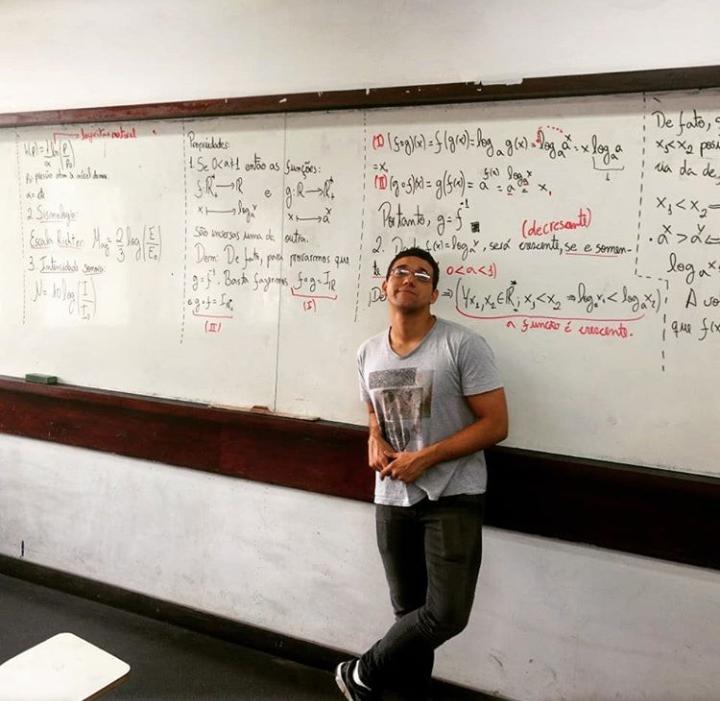 h(p) = 1/a ln(p/p₀)
p₀: pressão atm a nível do mar.
2. Sismologia:
Escala Richter: Mag = 2/3 log(E/E₀)
3. Intensidade sonora:
N = 10 log(I/I₀)
Propriedades:
1. Se 0<a≠1 então as funções:
f: R*₊ → R e g: R → R*₊
x ↦ logₐx x ↦ aˣ
são inversas uma da outra.
Dem: De fato, para provarmos que
g = f⁻¹. Basta fazermos f∘g = I_R
(I)
e g∘f = I_R*₊
(II)
(I) (f∘g)(x) = f(g(x)) = logₐ g(x) = logₐ aˣ = x logₐ a
1
= x.
(II) (g∘f)(x) = g(f(x)) = a^f(x) = a^logₐx = x,
Portanto, g = f⁻¹
(decrescente)
2. f(x) = logₐx, será crescente, se e somen-
te
0<a<1)
⇒ (∀x₁,x₂ ∈ R*₊; x₁<x₂ ⇒ logₐx₁ < logₐx₂)
a função é crescente.
De fato,
x₁<x₂
x₁ < x₂
aˣ > a
logₐx
que f(x